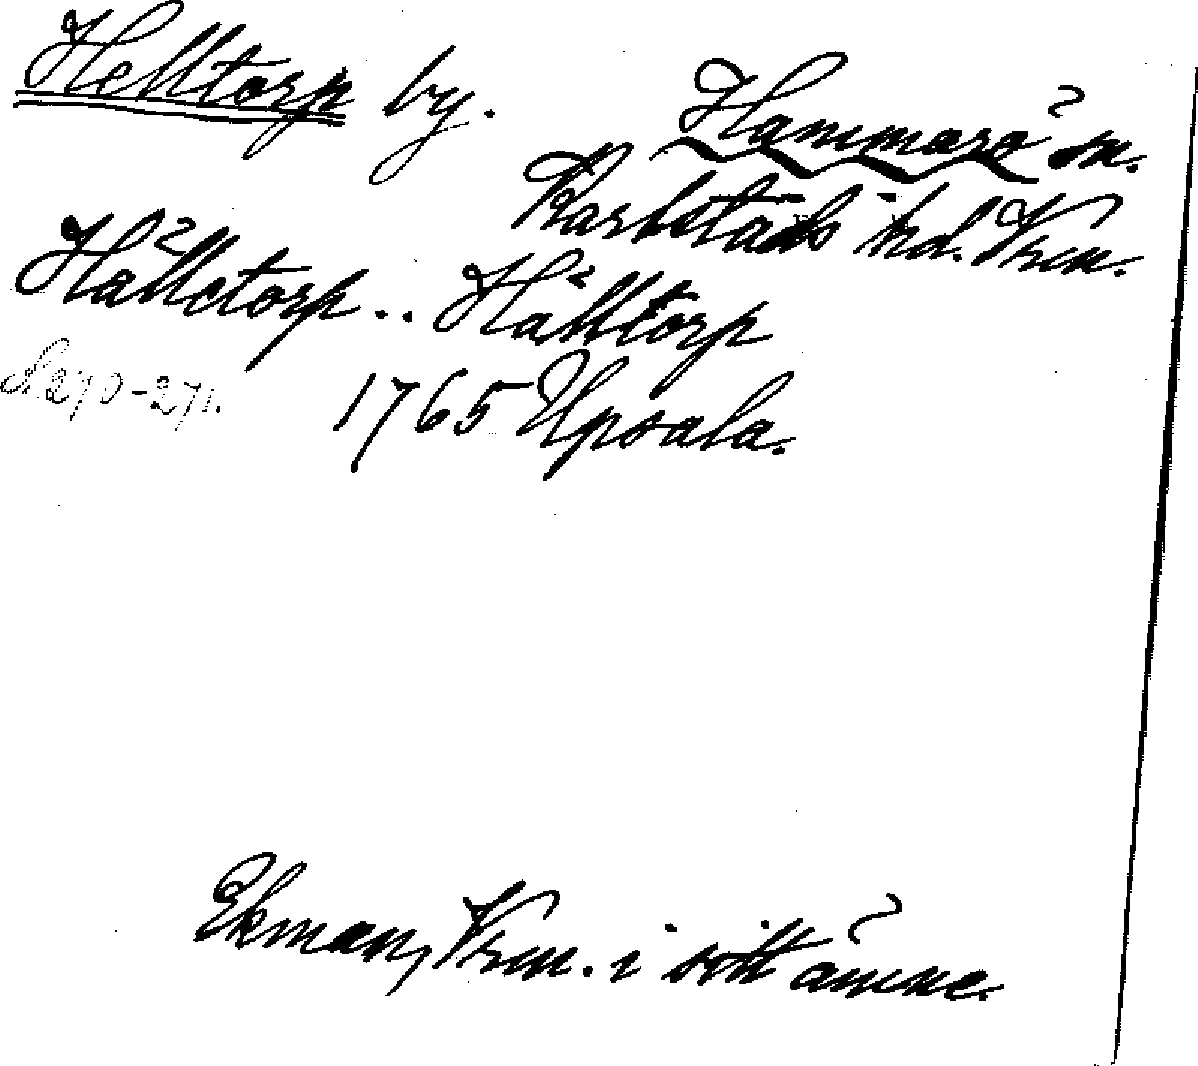 Helltorp by.
Hammarö sn.
Karlstads hd. Vrm.
Hälletorp .. Hälltorp
S. 270-271.
1765 Upsala.
Ekman, Vrm. i sitt ämne.